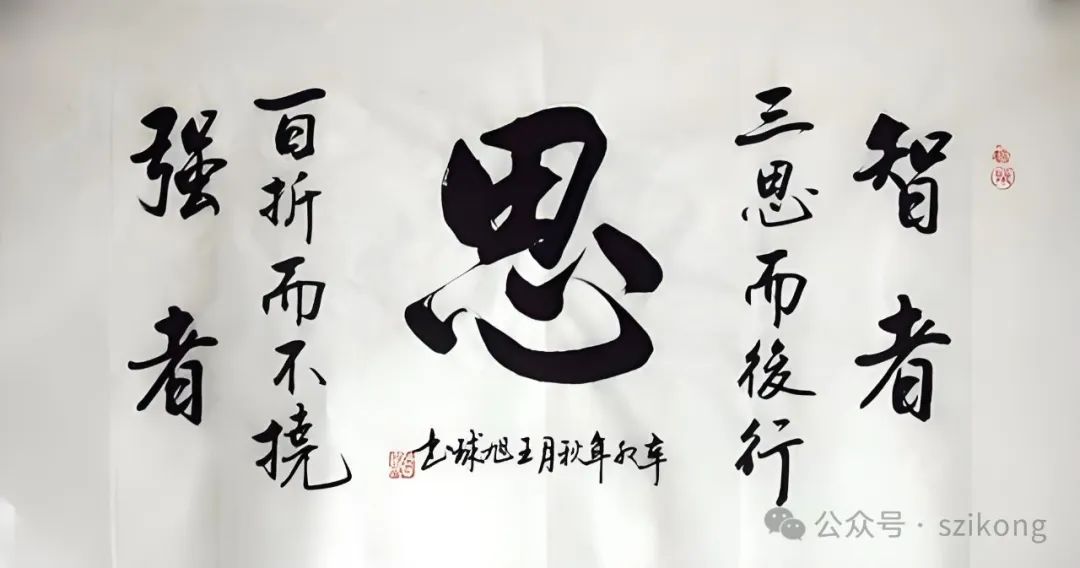 智者
三思而後行
思
年秋月王旭球书
百折而不撓
强者
公众号 · szikong